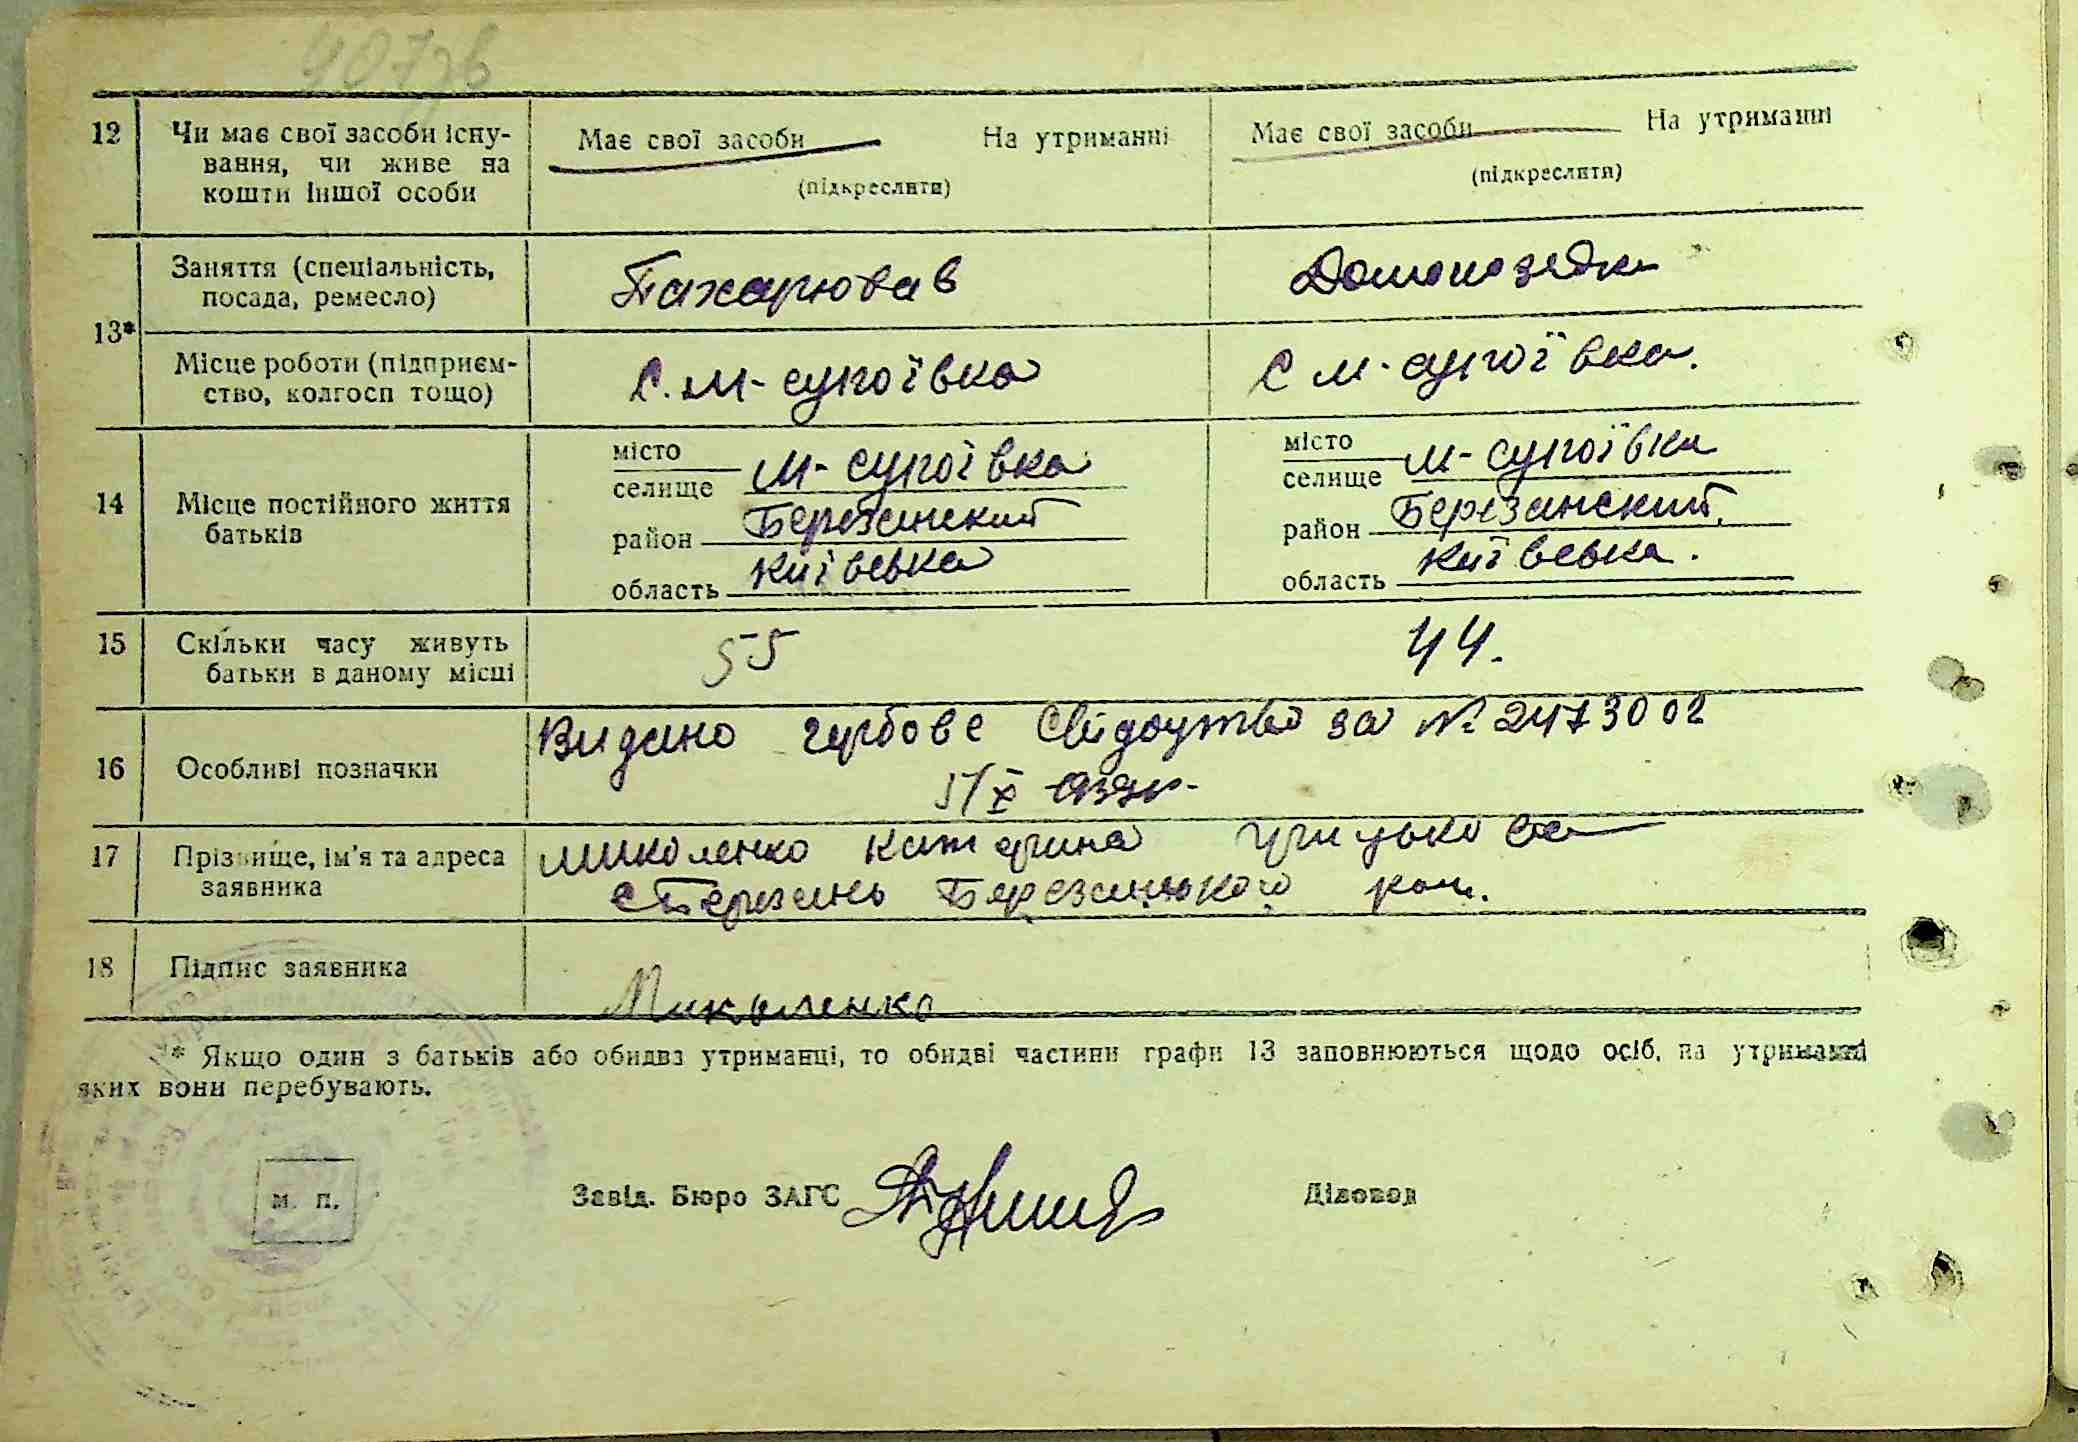 407зв
12 Чи має свої засоби існу- Має свої засоби На утриманні Має свої засоби На утриманні
вання, чи живе на (підкреслити) (підкреслити)
кошти іншої особи
Заняття (спеціальність, Пахарював Домохозядка
посада, ремесло)
13*
Місце роботи (підприєм- С. М-супоївка С М-супоївка.
ство, колгосп тощо)
місто місто
селище М-супоївка селище М-супоївка
14 Місце постійного життя район Березанский район Березанский.
батьків
область київська область київська.
15 Скільки часу живуть 55 44.
батьки в даному місці
Видано гербове Свідоцтво за № 2473002
16 Особливі позначки 5/X
17 Прізвище, ім'я та адреса Миколенко Катерина Грицькова
заявника с Березань Березанського
18 Підпис заявника
Миколенко
* Якщо один з батьків або обидва утриманці, то обидві частини графи 13 заповнюються щодо осіб, на утриманні
яких вони перебувають.
М. П. Завід. Бюро ЗАГС Діловод